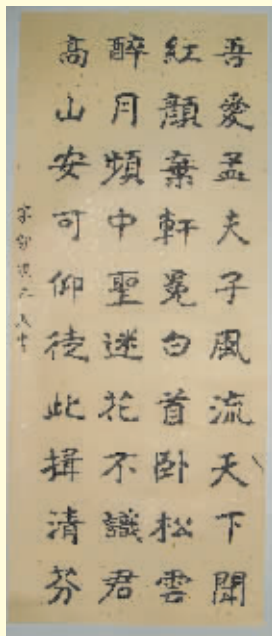 吾愛孟夫子風流天下聞
紅顏棄軒冕白首臥松雲
醉月頻中聖迷花不識君
高山安可仰徒此揖清芬